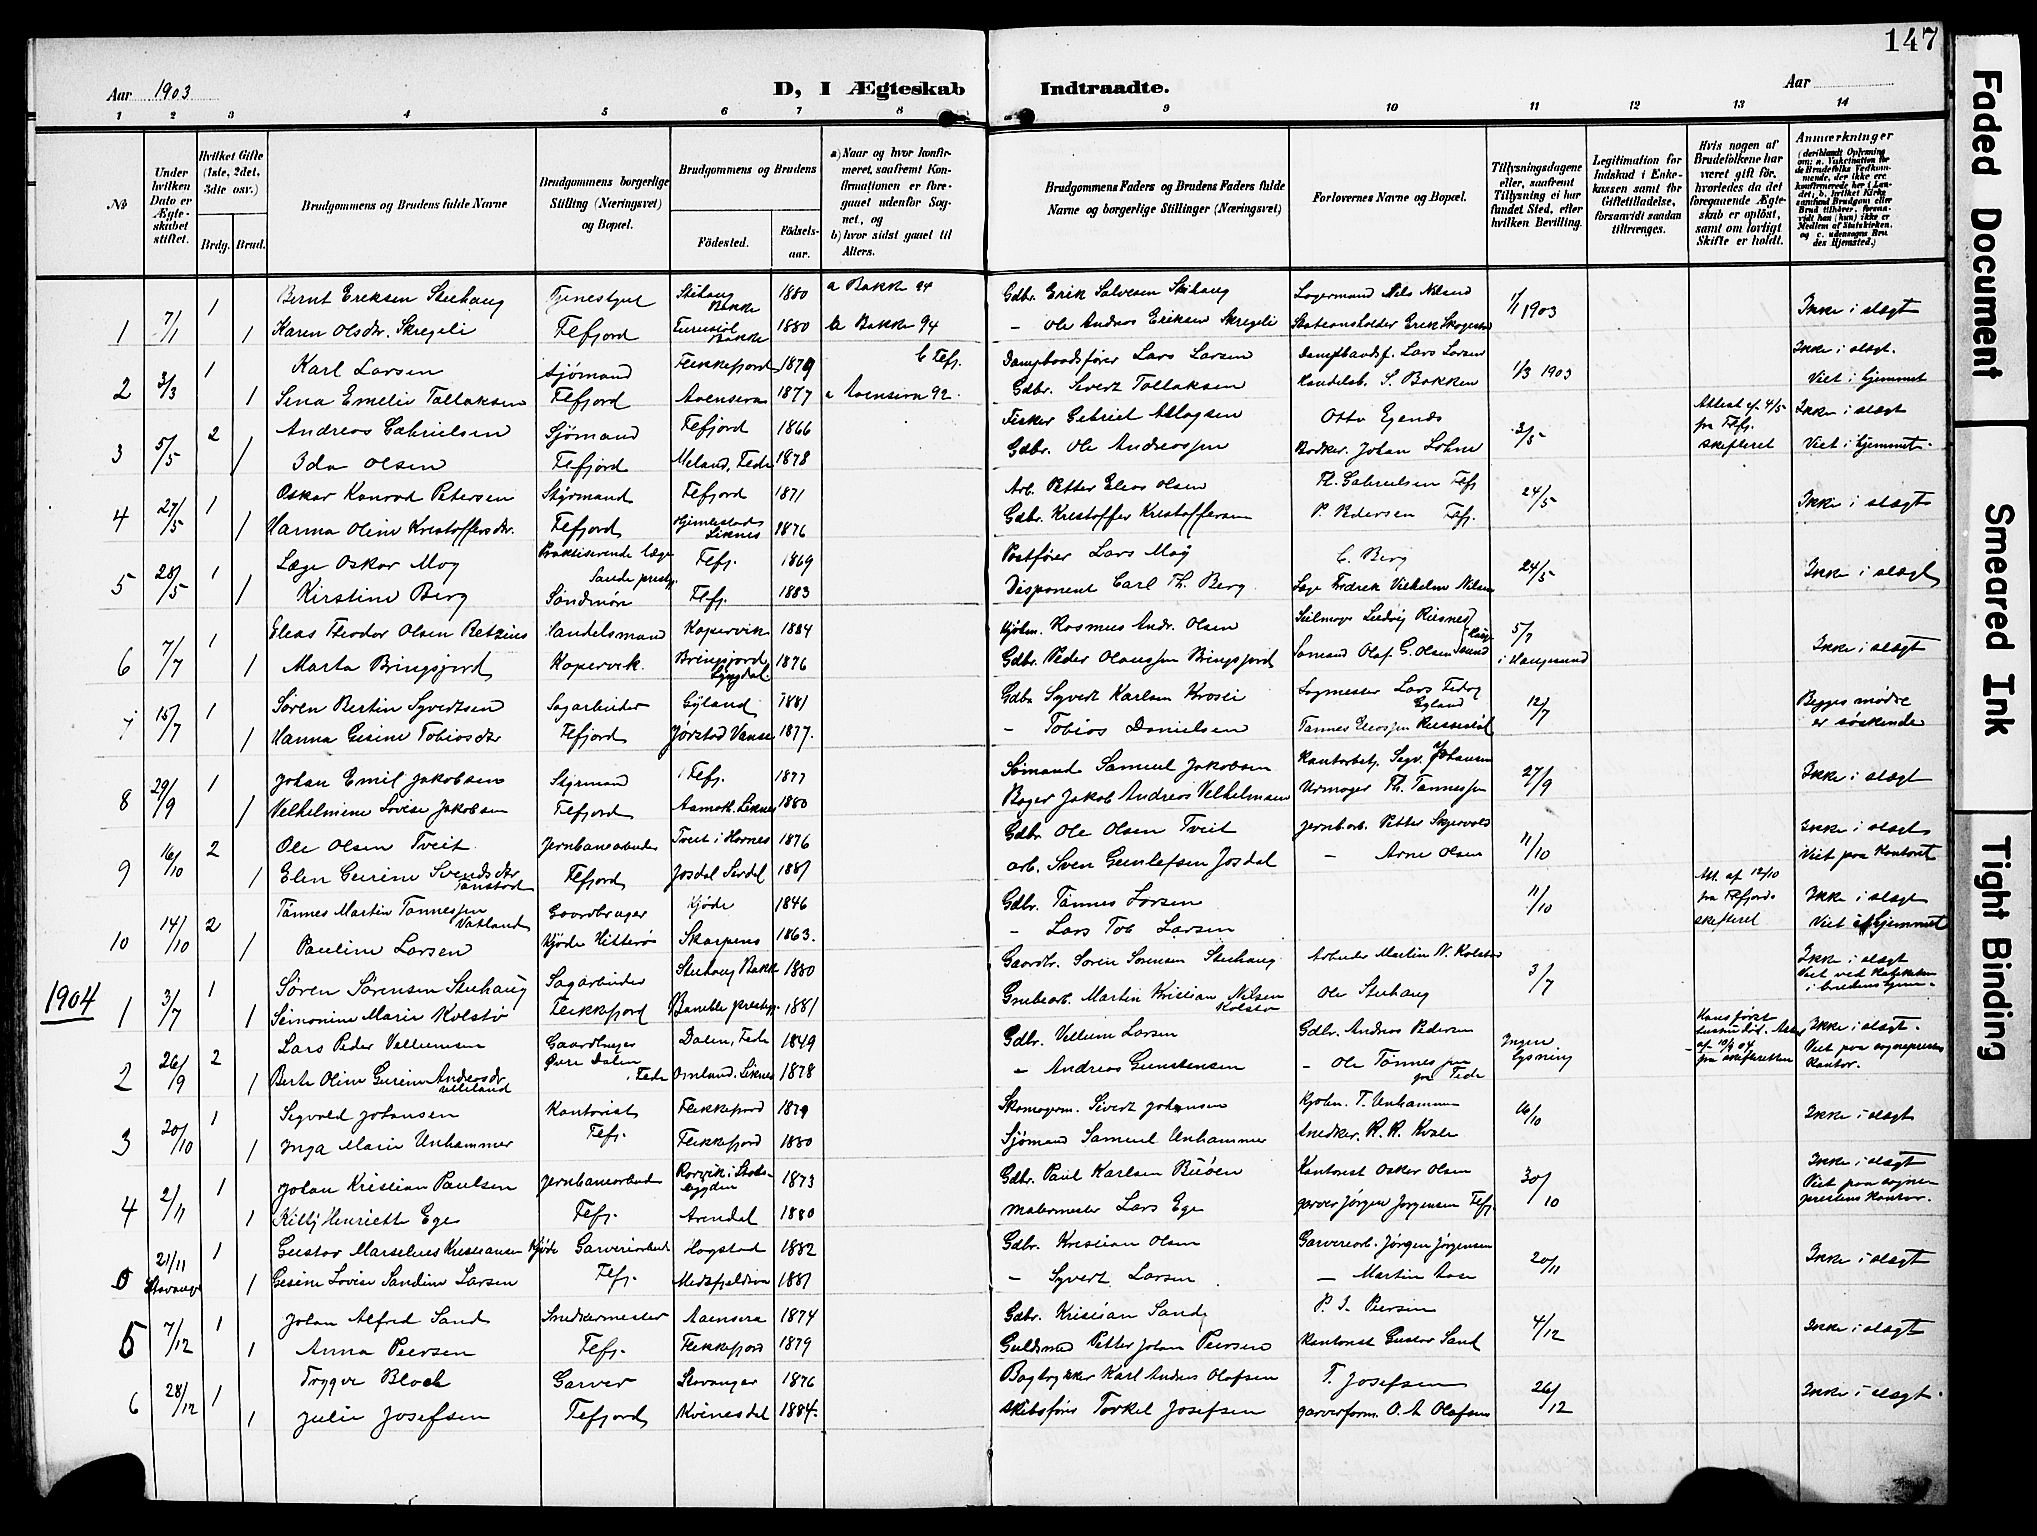 147
Aar 1903
D, I Ægteskab Indtraadte.
Aar
1 2 3 4 5 6 7 8 9 10 11 12 13 14
No
Under hvilken Dato er Ægteskabet stiftet.
Hvilket Gifte (1ste, 2det, 3die osv.)
Brdg. Brud.
Brudgommens og Brudens fulde Navne
Brudgommens borgerlige Stilling (Næringsvei) og Bopæl.
Brudgommens og Brudens
Födested.
Födselsaar.
a) Naar og hvor konfirmeret, saafremt Konfirmationen er foregaaet udenför Sognet, og
b) hvor sidst gaaet til Alters.
Brudgommens Faders og Brudens Faders fulde Navne og borgerlige Stillinger (Næringsvei)
Forlovernes Navne og Bopæl.
Tillysningsdagene eller, saafremt Tillysning ei har fundet Sted, efter hvilken Bevilling.
Legitimation for Indskud i Enkekassen samt for Giftetilladelse, forsaavidt saadan tiltrænges.
Hvis nogen af Brudefolkene har været gift för, hvorledes da det foregaaende Ægteskab er oplöst, samt om lovligt Skifte er holdt.
Anmærkninger
1 7/1 1 Bernt Eriksen Stuhaug Tjenestgut Stuhaug Bakke 1880 a Bakke 94 Gdbr. Erik Salvesen Stuhaug Lagermand Nils Nilsen 1/1 1903 Ikke i slægt
1 Karen Olsdr. Skregeli Fefjord Bakke 1880 a Bakke 94 - Ole Andreas Eriksen Skregeli Stationsholder Erik
2 3/3 1 Karl Larsen Sjömand Flekkefjord 1879 b Fefj. Dampbaadsförer Lars Larsen Dampbaadsf. Lars Larsen 1/3 1903 Ikke i slægt.
1 Sina Emelie Tollaksen Fefjord Aaensira 1877 a Aaensira 92. Gdbr. Sivert Tollaksen Handelsb. S. Bakken Viet i hjemmet
3 5/5 2 Andreas Gabrielsen Sjömand Fefjord 1866 Fisker Gabriel Aslagsen Otto Egenes 3/5 Attest af 4/5 fra Fefj. skifteret Ikke i slægt
1 Ida Olsen Fefjord Meland, Fede 1878 Gdbr. Ole Andreassen Bödker. Johan Lohne Viet i hjemmet.
4 27/5 1 Oskar Konrad Petersen Styrmand Fefjord 1871 Arb. Petter Elias Olsen Th. Gabrielsen Fefj 24/5 Ikke i slægt
1 Hanna Oline Kristoffersdr. Fefjord Liknes 1876 Gdbr. Kristoffer Kristoffersen P. Pedersen Fefj.
5 28/5 1 Læge Oskar Moy Praktiserende læge Fefj. 1869 Postförer Lars Moy C. Berg 24/5 Ikke i slægt
1 Kirstine Berg Sande prestg. Söndmöre Fefj. 1883 Disponent Carl Th. Berg Læge Fredrik Vilhelm Nilsen
6 7/7 1 Elias Theodor Olsen Retzius Handelsmand Kopervik 1884 Kjöbm. Rasmus Andr. Olsen Seilmager Ludvig 5/7 i Haugesund Ikke i slægt
1 Marta Bringsjord Kopervik. Bringsjord Lyngdal. 1876 Gdbr. Peder Olaussen Bringsjord Sömand Olaf G. Olsen
7 15/7 1 Sören Bertin Syvertsen Sagarbeider Gyland 1881 Gdbr Syvert Karlsen Lagmester Lars Gyland 12/7 Begges mödre er söskende
1 Hanna Gesine Tobiasdr Fefjord Jörstad Vanse 1877. - Tobias Danielsen Tønnes Eliassen
8 29/9 1 Johan Emil Jakobsen Styrmand Fefj. 1877 Sömand Samuel Jakobsen Kontorbetj. Sigv. Johansen 27/9 Ikke i slægt
1 Vilhelmine Lovise Jakobsen Fefjord Aamot. Liknes 1880 Bager Jakob Andreas Vilhelmsen Urmager Th. Tønnessen
9 16/10 2 Ole Olsen Tveit Jernbanearbeider Tveit i Hornes 1876 Gdbr Ole Olsen Tveit Jernb.arb. Petter 11/10 Ikke i slægt
1 Elen Serine Svendsdtr Fefjord Josdal Sirdal 1881 Arb. Sven Gunlefsen Josdal - Arne Olsen Viet paa kontoret
10 14/10 2 Tönnes Martin Tönnessen Vatland Gaardbruger Kjöde 1846 Gdbr. Tönnes Larsen 11/10 Att. af 12/10 fra Fefjords skifteret Ikke i slægt
1 Pauline Larsen Kjöde Hitterö Skarpenes 1863. - Lars Tob Larsen Viet i hjemmet
1904
1 3/7 1 Sören Sörensen Stuhaug Sagarbeider Stuhaug Bakke 1880 Gaardbr. Sören Sörensen Stuhaug Arbeider Martin N. Kolstö 3/7 Ikke i slægt
1 Simonine Marie Kolstö Flekkefjord Bamble prestg. 1881 Grubearb. Martin Kristian Nilsen Kolstö Ole Stuhaug Viet ved i brudens hjem
2 26/9 2 Lars Peder Villumsen Gaardbruger Dalen, Fede 1849 Gdbr. Villum Larsen Gdbr. Andreas Pedersen Ingen lysning Hans förste hustru död. Attest af 10/9 04 fra skifteretten Ikke i slægt.
1 Berte Oline Gurine Andersdr Övre Dalen, Fede Omland. Liknes 1878 - Andreas Gunstensen - Ole Tönnessen Fede Viet paa sogneprestens kontor.
3 20/10 1 Sigvald Johansen Kontorist Flekkefjord 1879 Skomagerm. Sivert Johansen Kjöbm. T. Unhammer 16/10 Ikke i slægt
1 Inga Marie Unhammer Fefj. Flekkefjord 1880 Sjömand Samuel Unhammer Snedker. R. R. Kvale
4 2/11 1 Johan Kristian Paulsen Jernbanearbeider Rorvik i 1873 Gdbr. Paul Karlsen Buöen Kontorist Oskar Olsen 30/10 Ikke i slægt
1 Kitty Henriette Ege Fefj. Arendal 1880 Malermester Lars Ege Garver Jörgen Jörgensen Fefj. Viet paa sogneprestens kontor.
5 21/11 Stavanger 1 Gustav Marselius Kristiansen Kjöde Garveriarbeider Hogstad 1882 Gdbr. Kristian Olsen Garveriarb. Jörgen Jörgensen 20/11 Ikke i slægt
1 Gesine Lovise Sandine Larsen Fefj. 1881 - Syvert Larsen - Martin Aase
5 7/12 1 Johan Alfred Sand Snedkermester Aaensira 1874 Gdbr. Kristian Sand P. J. Peersen 4/12 Ikke i slægt
1 Anna Peersen Fefj. Flekkefjord 1879 Guldsmed Petter Johan Peersen Kontorist Gustav Sand
6 28/12 1 Trygve Bloch Garver Stavanger 1876 Bogtrykker Karl Anders Olafsen T. Josefsen 26/12 Ikke i slægt.
1 Julie Josefsen Fefjord Kvinesdal 1884. Skibsförer Torkel Josefsen Garverform. O. A Olafsen
Faded Document
Smeared Ink
Tight Binding